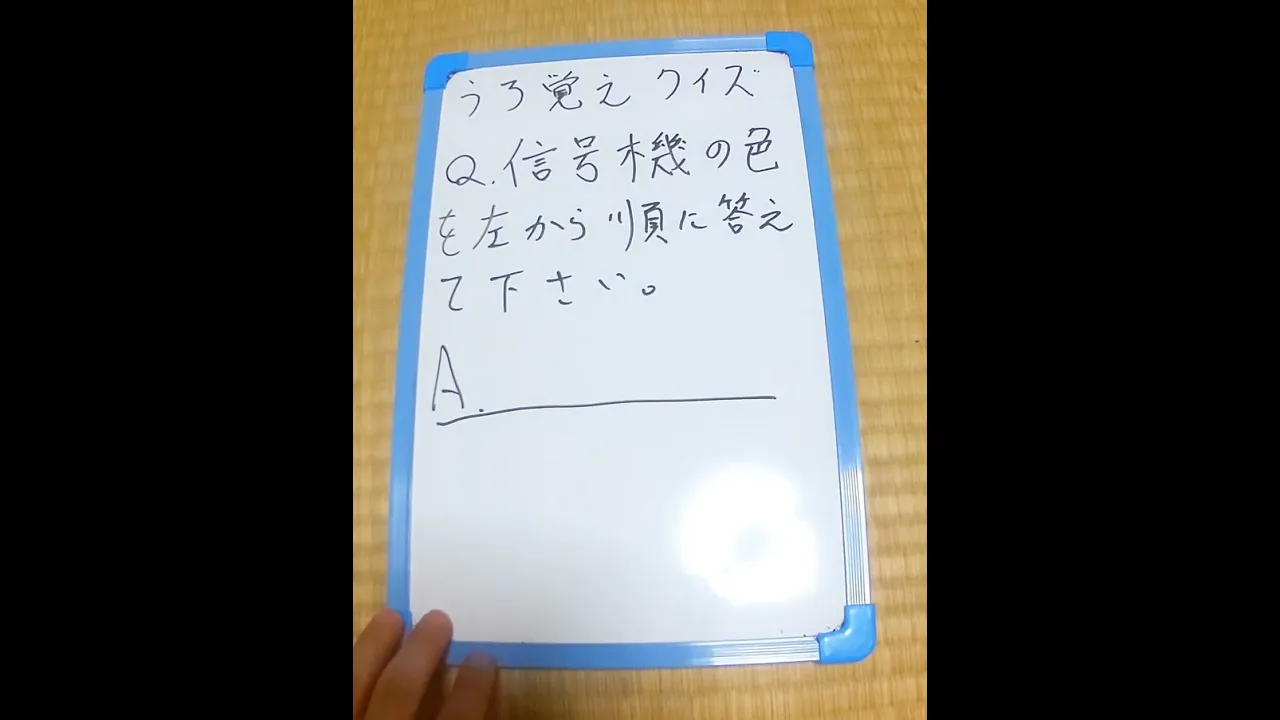 うろ覚えクイズ
Q.信号機の色
を左から順に答え
て下さい。
A.